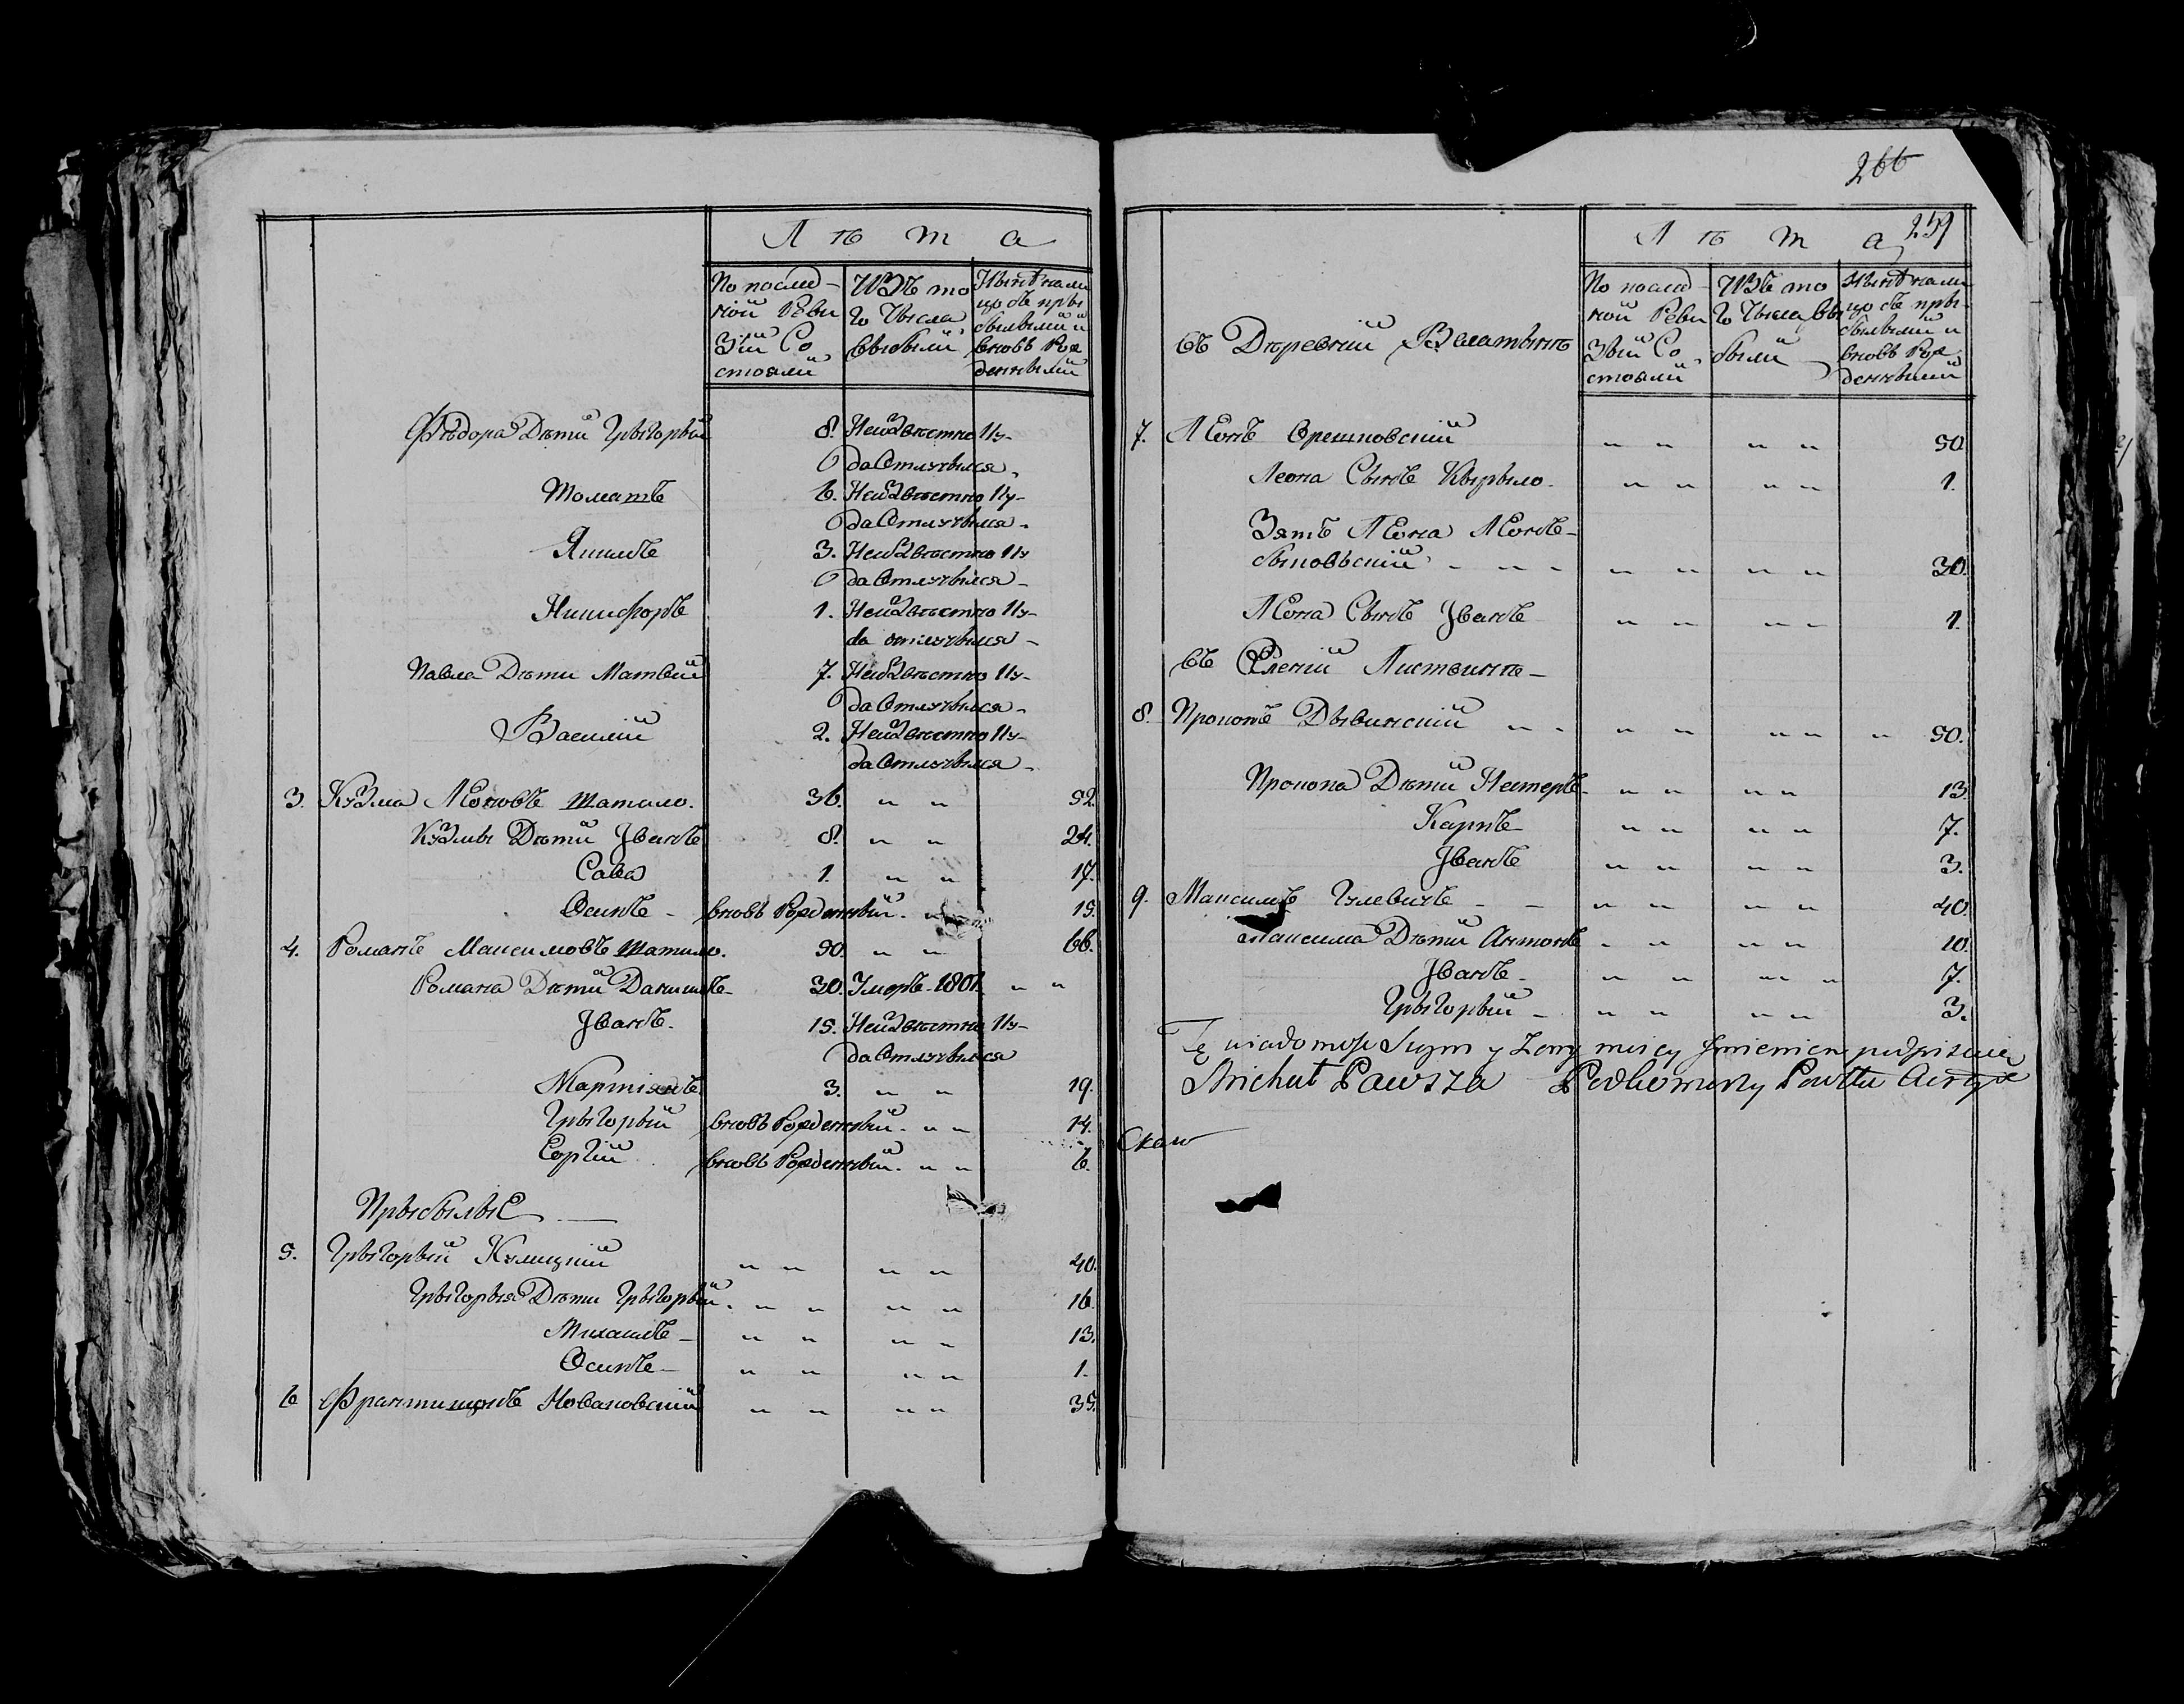 Лѣта
По послед-
ной Реви
Зіи Со
стояли
ИЗъ то
го Числа
выбыли
Нынѣ нали
цо съ при
былыми и
вновь Рож
денными
Фѣдора Дѣти Грыгорый 8. Неизвѣстно Ку-
да Отлучылся.
Томашъ 6. Неизвѣстно Ку-
да Отлучылся.
Якимъ 3. Неизвѣстно Ку
да Отлучылся
Никифоръ 1. Неизвѣстно Ку-
да отлучылся
Павла Дѣти Матвей 7. Неизвѣстно Ку-
да Отлучылся.
Василій 2. Неизвѣстно Ку-
да Отлучылся
3. Кузма Леоновъ Шатило. 36. " " 52.
Кузмы Дѣти Иванъ 8. " " 24.
Сава 1. " " 17.
Осипъ - вновь Рожденный. " 15.
4. Романъ Максимовъ Шатило. 50. " " 66.
Романа Дѣти Данило 30. Умеръ 1801. " "
Иванъ. 15. Неизвѣстно Ку-
да Отлучылся
Мартинъ 3. " " 19.
Грыгорый вновь Рожденный. " " 14.
Сергій вновь Рожденный. " " 6.
Прыбылые
5. Грыгорый Кулицкій " " " " 40.
Грыгорыя Дѣти Грыгорый. " " " " 16.
Михаилъ " " " " 13.
Осипъ " " " " 1.
6 Франтишокъ Новаковскій " " " " 35.
266
Лѣта 259
въ Дѣревни
По послед-
ной Реви
Зыи Со
стояли
ИЗъ то
го Числа вы
были
Нынѣ нали
цо съ при-
былыми и
вновь Рож
денными
7. Леонъ Орешковскій " " " " 50
Леона Сынъ Кырыло. " " " " 1.
Зять Леона Леонъ
" " " " 30.
Леона Сынъ Иванъ " " " " 1.
въ
8. Прокопъ Двинскій " " " " " 50.
Прокопа Дѣти Нестеръ. " " " " 13.
Карпъ " " " " 7.
Иванъ " " " " 3.
9. Максимъ Гулевичъ " " " " 40.
Максима Дѣти Антонъ " " " 10.
Иванъ " " " " 7.
Грыгорый " " " " 3.
Tę wiadomość
Michał Pawsza Podkomorzy Powttu
Скаю